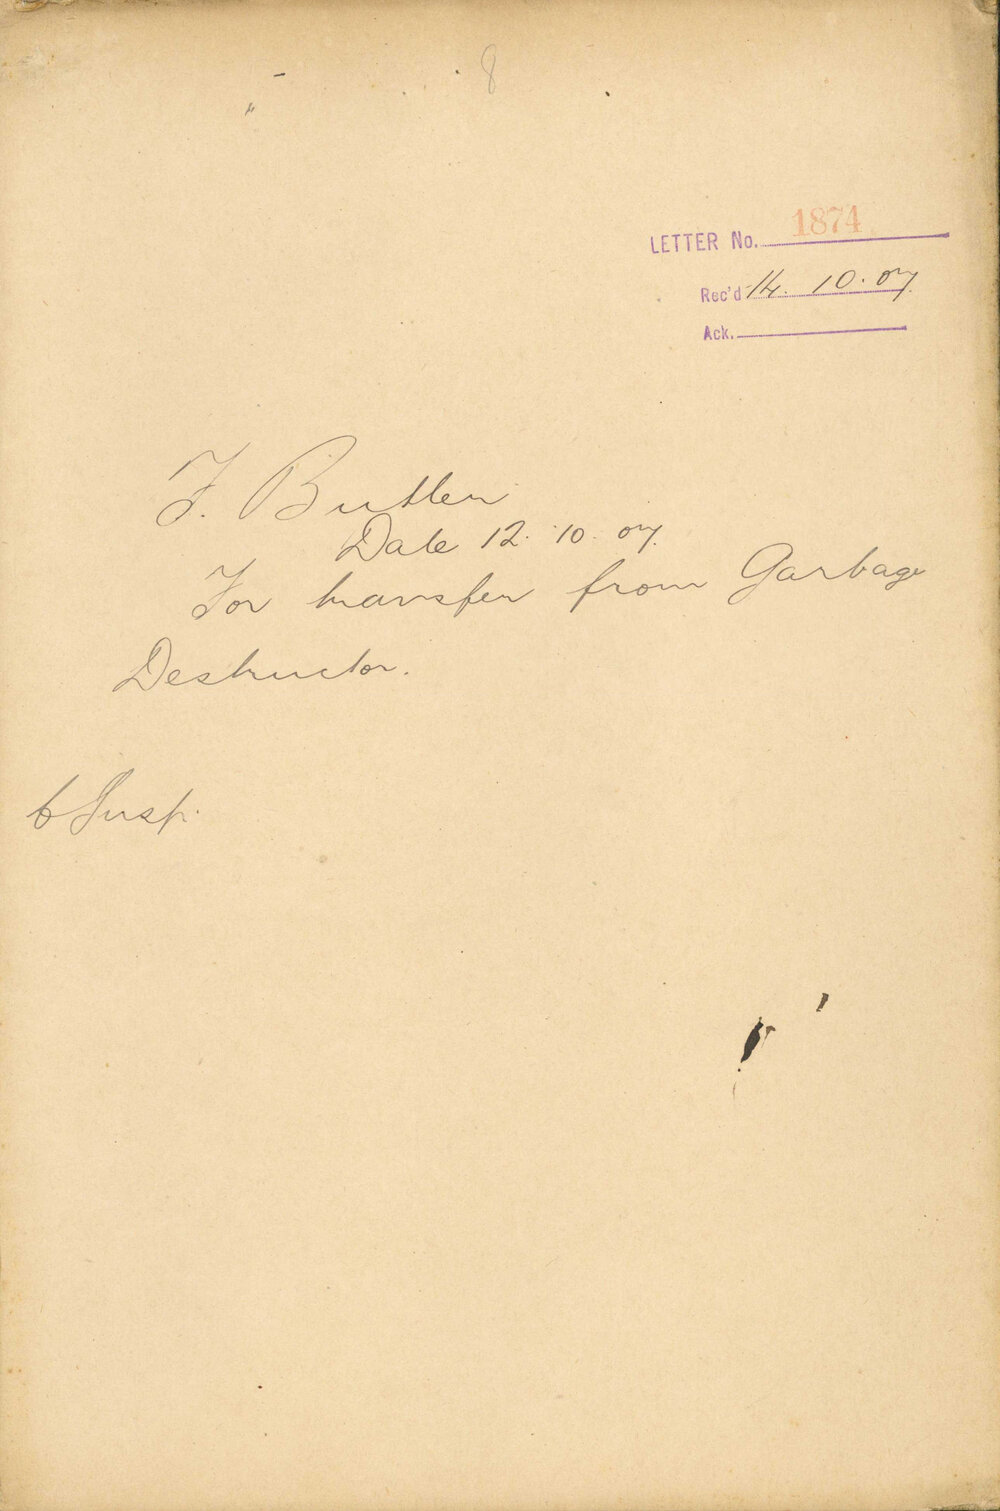 8
LETTER No. 1874
Rec'd 14. 10. 07
Ack.
F. Butler
Date 12. 10. 07.
For transfer from Garbage
Destructor.
Insp.